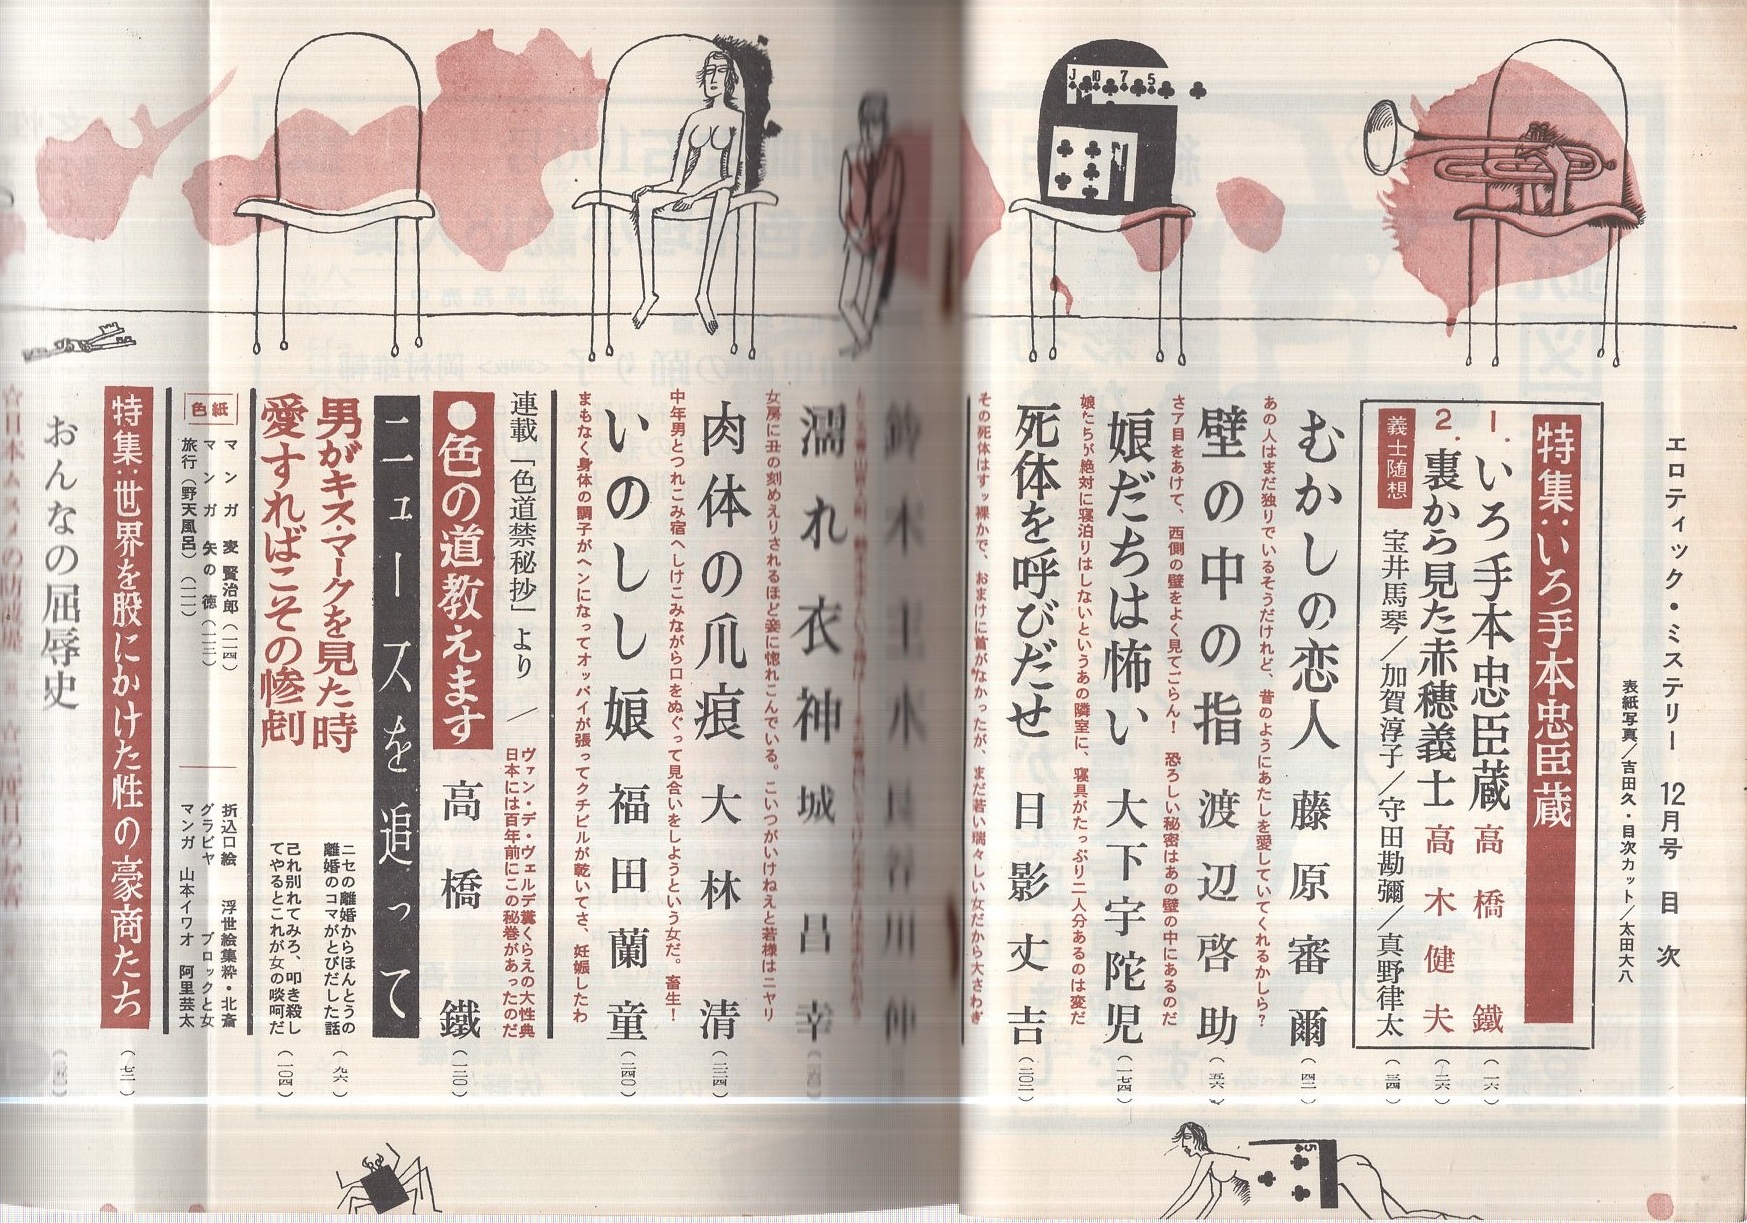 エロティック・ミステリー 12月号 目次
表紙写真/吉田久・目次カット/太田大八
特集:いろ手本忠臣蔵
1.いろ手本忠臣蔵 高橋鐵 (一六)
2.裏から見た赤穂義士 高木健夫 (二六)
義士随想 宝井馬琴/加賀淳子/守田勘彌/真野律太 (三四)
むかしの恋人 藤原審爾 (四二)
あの人はまだ独りでいるそうだけれど、昔のようにあたしを愛していてくれるかしら?
壁の中の指 渡辺啓助 (五六)
さア目をあけて、西側の壁をよく見てごらん! 恐ろしい秘密はあの壁の中にあるのだ
娘だちは怖い 大下宇陀児 (一七四)
娘たちが絶対に寝泊りはしないというあの隣室に、寝具がたっぷり二人分あるのは変だ
死体を呼びだせ 日影丈吉 (二〇二)
その死体はすッ裸かで、おまけに首がなかったが、まだ若い瑞々しい女だから大さわぎ
鈴木主水 長谷川伸
濡れ衣神 城昌幸
女房に丑の刻めえりされるほど妾に惚れこんでいる。こいつがいけねえと若様はニヤリ
肉体の爪痕 大林清 (二二四)
中年男とつれこみ宿へしけこみながら口をぬぐって見合いをしようという女だ。畜生!
いのしし娘 福田蘭童 (二四〇)
まもなく身体の調子がヘンになってオッパイが張ってクチビルが乾いてさ、妊娠したわ
連載「色道禁秘抄」より/
ヴァン・デ・ヴェルデ糞くらえの大性典
日本には百年前にこの秘巻があったのだ
●色の道教えます 高橋鐵 (一二〇)
ニュースを追って
男がキス・マークを見た時
ニセの離婚からほんとうの
離婚のコマがとびだした話 (九六)
愛すればこその惨劇
己れ別れてみろ、叩き殺し
てやるとこれが女の啖呵だ (一〇四)
色紙
マンガ 麦賢治郎 (一一四)
マンガ 矢の徳 (一一三)
旅行(野天風呂) (一一一)
折込口絵 浮世絵集粋・北斎
グラビヤ ブロックと女
マンガ 山本イワオ 阿里芸太
特集:世界を股にかけた性の豪商たち (七二)
おんなの屈辱史
J 10 7 5
5